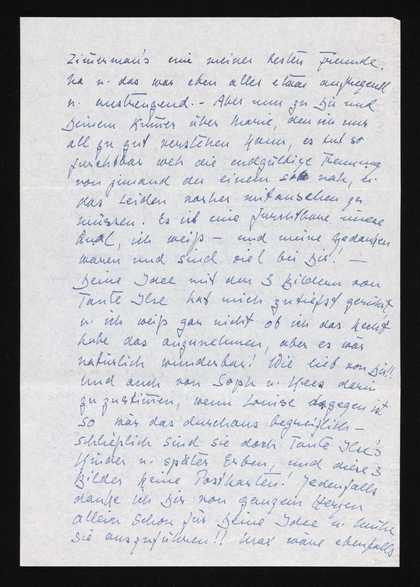 Zimerman's eine meiner besten Freunde.
Na u. das war eben alles etwas aufregend
u. anstrengend. - Aber nun zu Dir und
Deinem Kummer über Marie, den ich nur
all zu gut verstehen kann, es tut so
furchtbar weh die endgültige Trennung
von jemand der einem so nah, u.
das Leiden vorher mitansehen zu
müssen. Es ist eine furchtbare innere
Qual, ich weiß - und meine Gedanken
waren und sind viel bei Dir! -
Deine Idee mit den 3 Bildern von
Tante Ilse hat mich zutiefst gerührt,
u. ich weiß gar nicht ob ich das Recht
habe das anzunehmen, aber es wär
natürlich wunderbar! Wie lieb von Dir!!
Und auch von Soph u. darin
zuzustimmen, wenn Louise dagegen ist
so wär das durchaus begreiflich -
schließlich sind sie doch Tante Ilse's
Kinder u. später Erben, und diese 3
Bilder keine Postkarten! Jedenfalls
danke ich Dir von ganzem Herzen
allein schon für Deine Idee u. Mühe
sie auszuführen!! wäre ebenfalls